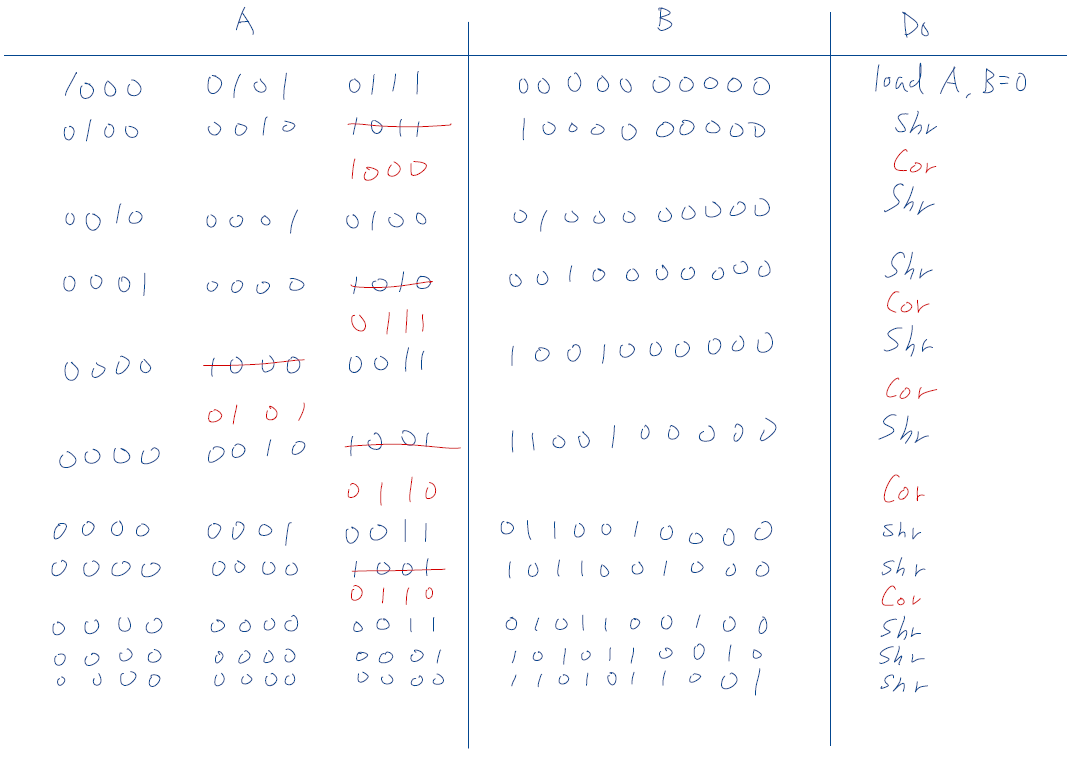 A B Do
1000 0101 0111 00000 00000 load A, B=0
0100 0010 1011 10000 00000 Shr
1000 Cor
0010 0001 0100 01000 00000 Shr
0001 0000 1010 0010000000 Shr
0111 Cor
0000 1000 0011 1001000000 Shr
0101 Cor
0000 0010 1001 1100100000 Shr
0110 Cor
0000 0001 0011 0110010000 shr
0000 0000 1001 1011001000 shr
0110 Cor
0000 0000 0011 0101100100 Shr
0000 0000 0001 1010110010 Shr
0000 0000 0000 1101011001 shr